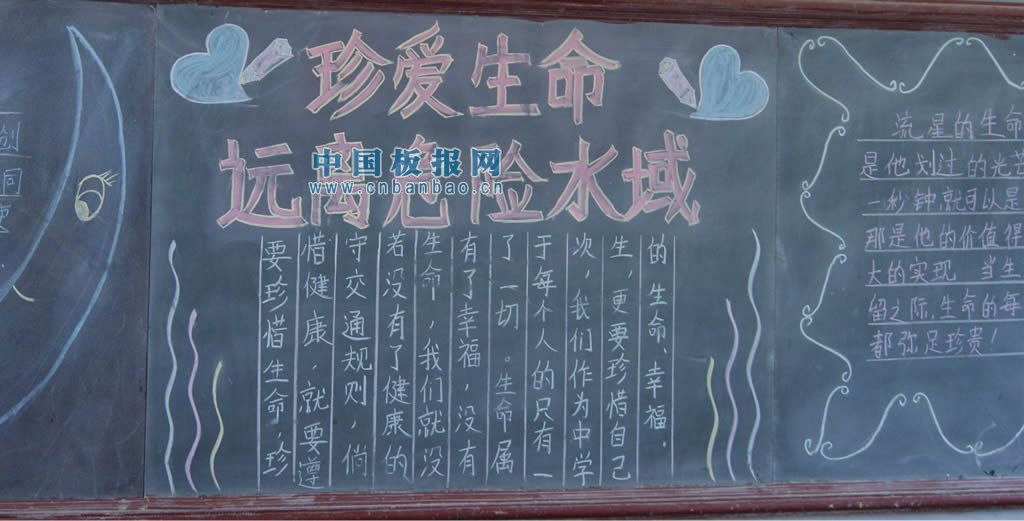 创
同
珍爱生命
远离危险水域
中国板报网
www.cnbanbao.cn
要珍惜生命，珍
惜健康，就要遵
守交通规则，倘
若没有了健康的
生命，我们就没
有了幸福，没有
了一切。生命属
于每个人的只有一
次，我们作为中学
生，更要珍惜自己
的生命、幸福.
流星的生命
是他划过的光芒
一秒钟就可以是
那是他的价值得
大的实现 当生
留之际,生命的每
都弥足珍贵!